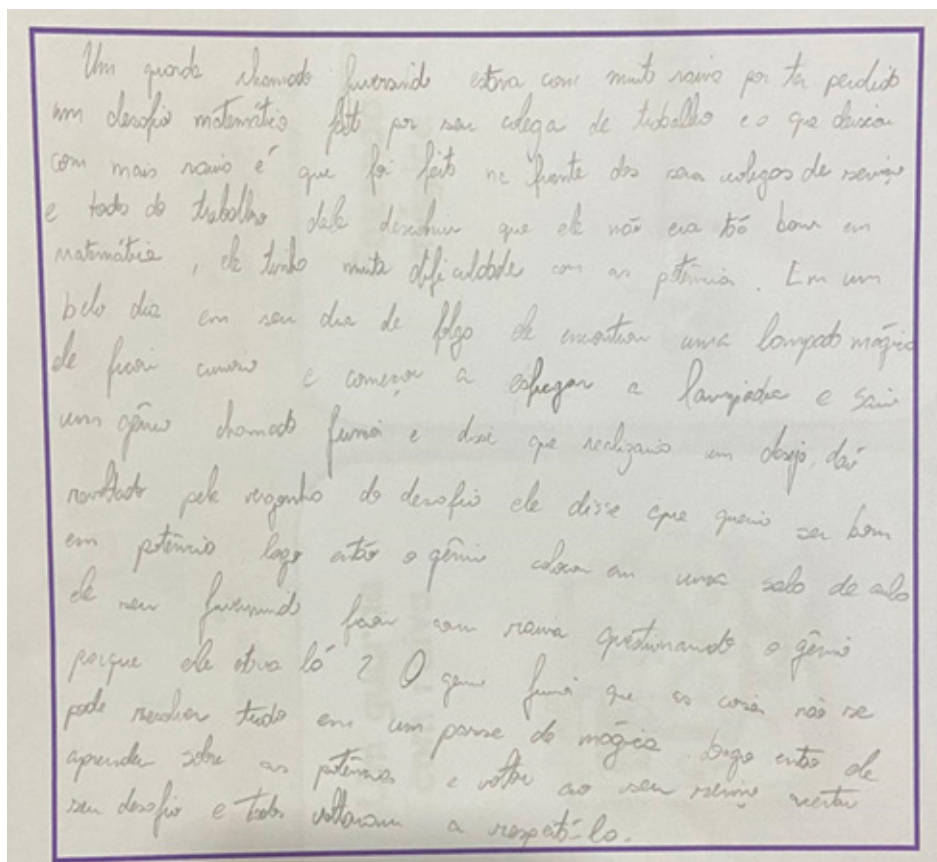 Um guarda chamado Juversindo estava com muito raiva por ter perdido
um desafio matemático feito por seu colega de trabalho e o que deixou
com mais raiva é que foi feito na frente dos seus colegas de serviço
e todo do trabalho dele descobriu que ele não era tão bom em
matemática, ele tinha muita dificuldade com as potência. Em um
belo dia em seu dia de folga ele encontrou uma lampada mágica
ele ficou curioso e começou a esfregar a lampada e saiu
um gênio chamado e disse que realizaria um desejo, daí
revoltado pela vergonha do desafio ele disse que queria ser bom
em potência logo então o gênio colocou em uma sala de aula
ficou com raiva questionando o gênio
porque ele estava lá? O genio que as coisas não se
pode resolver tudo em um passe de mágica. Logo então ele
aprendeu sobre as potências e voltou ao seu serviço
seu desafio e todos voltaram a respeitá-lo.